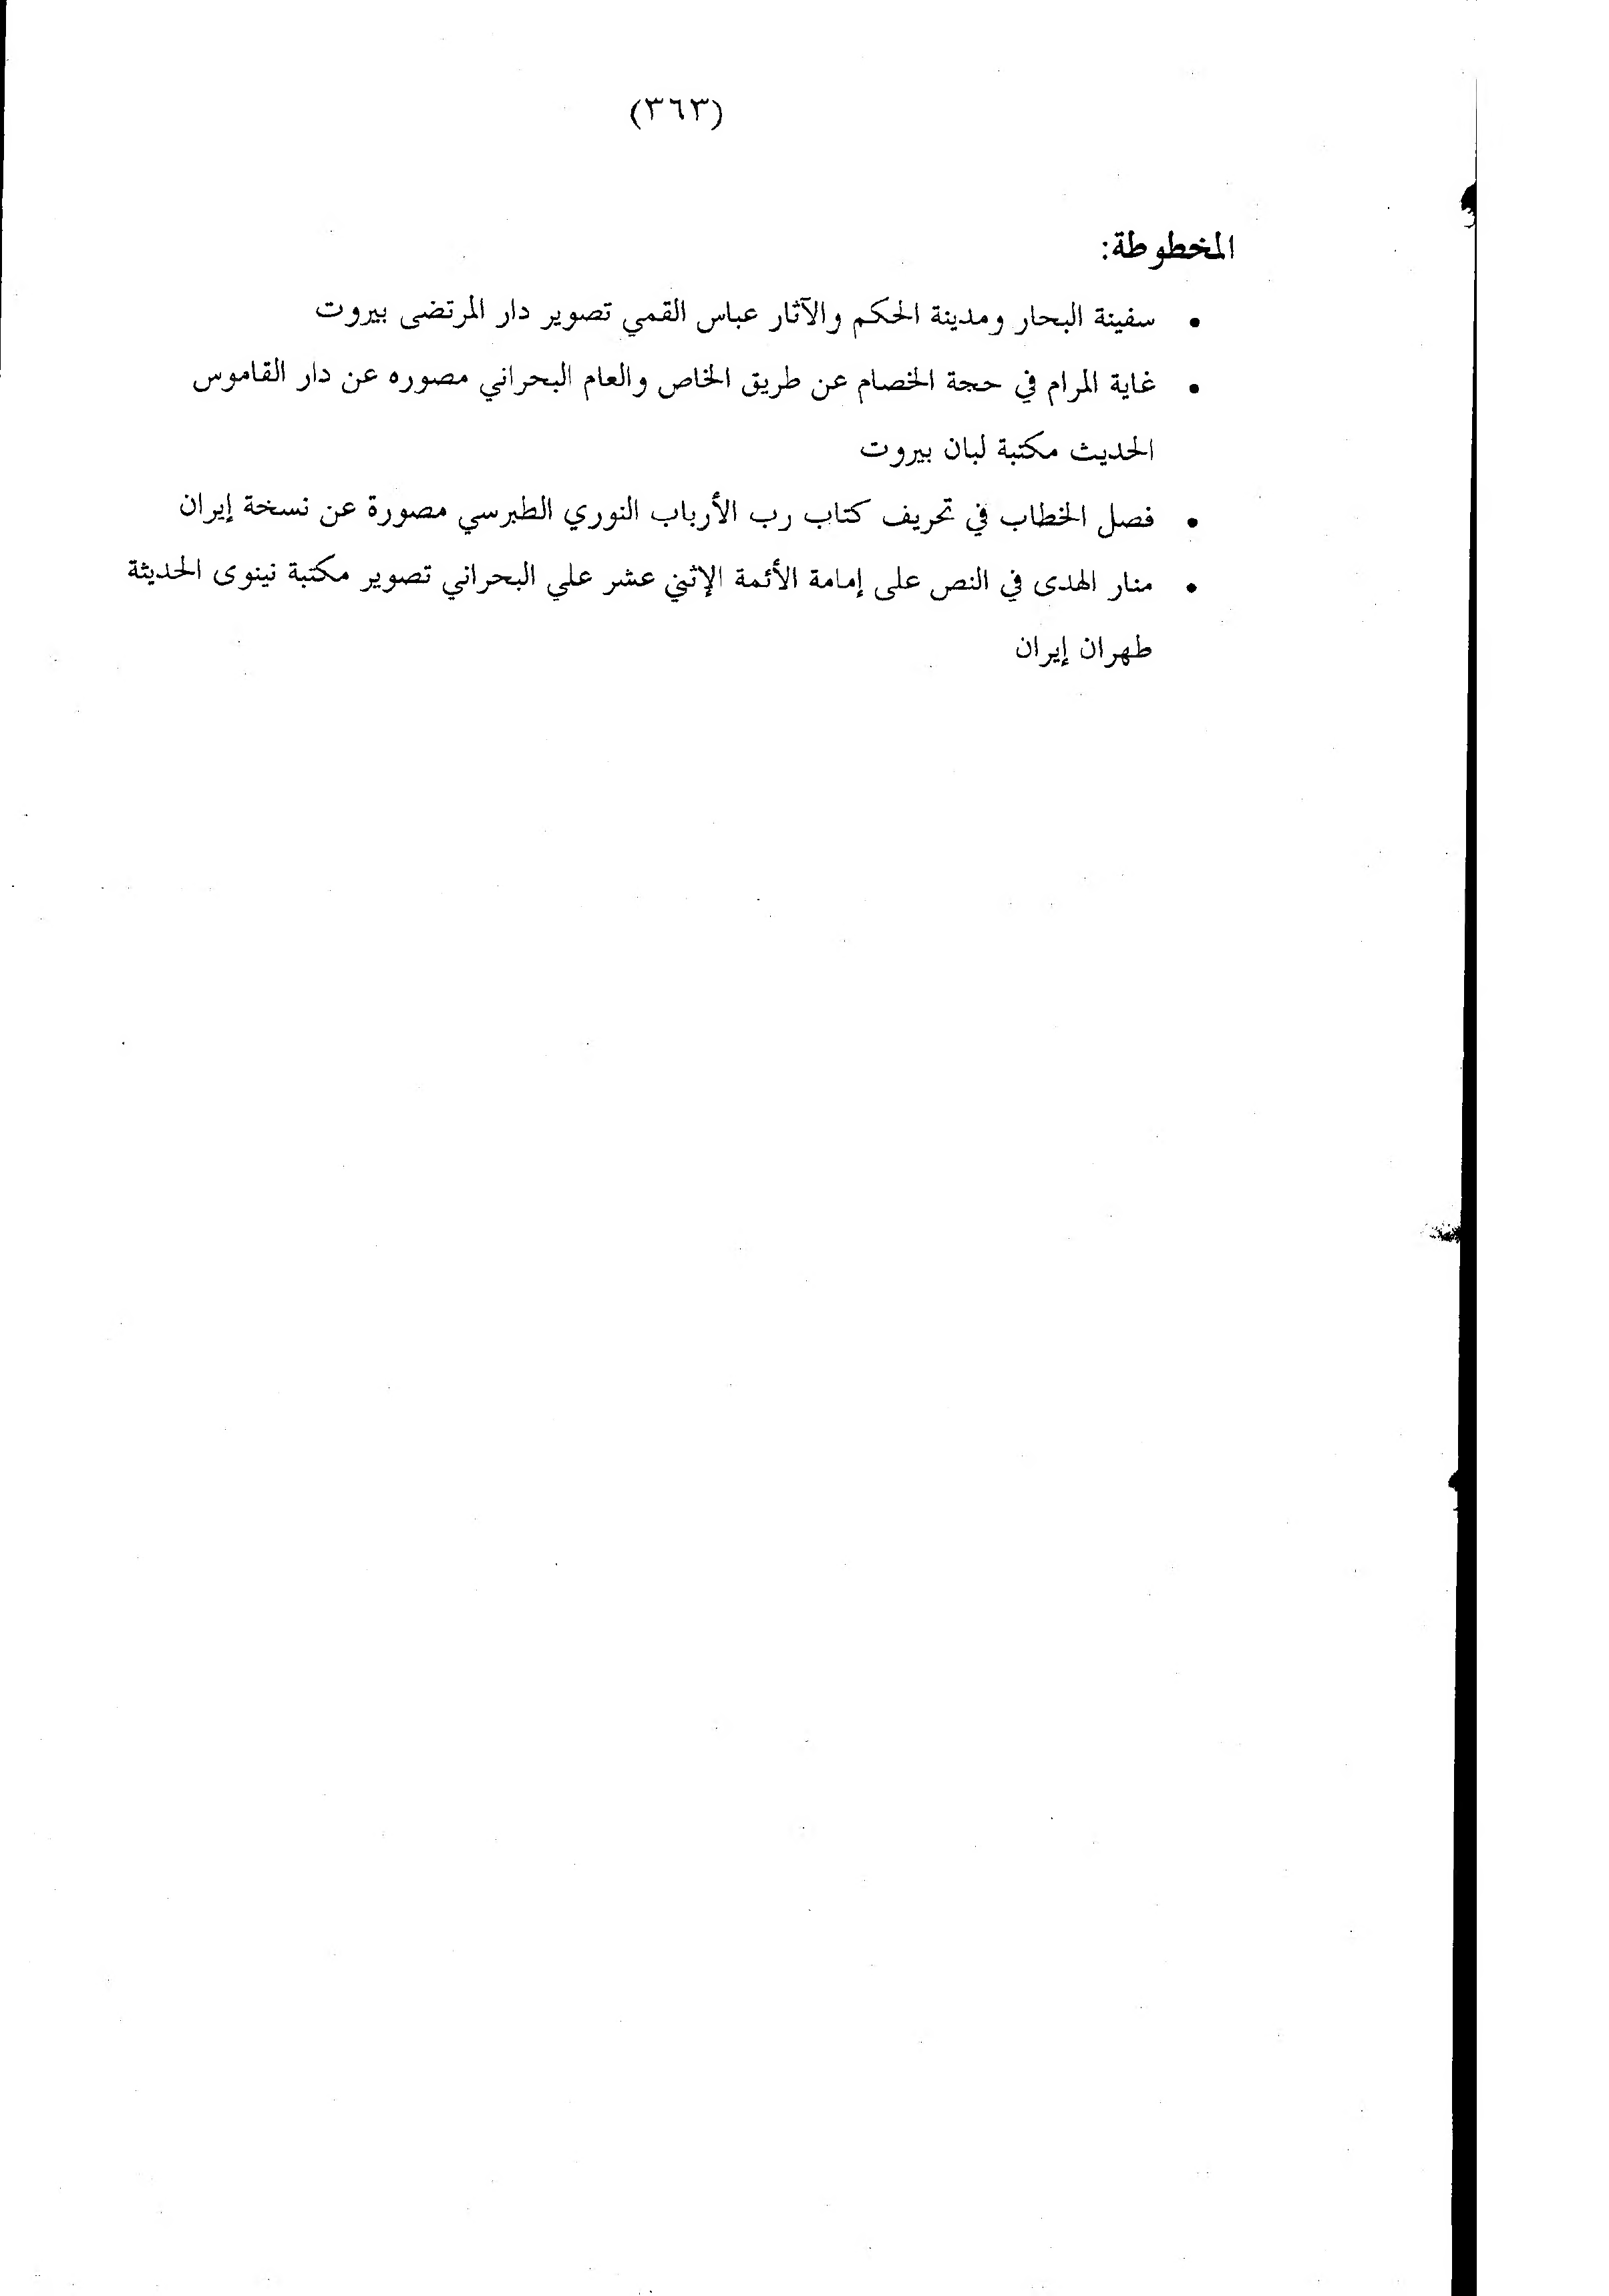 (٣٦٣)
المخطوطة:
• سفينة البحار ومدينة الحكم والآثار عباس القمي تصوير دار المرتضى بيروت
• غاية المرام في حجة الخصام عن طريق الخاص والعام البحراني مصوره عن دار القاموس
الحديث مكتبة لبان بيروت
• فصل الخطاب في تحريف كتاب رب الأرباب النوري الطبرسي مصورة عن نسخة إيران
• منار الهدى في النص على إمامة الأئمة الإثني عشر علي البحراني تصوير مكتبة نينوى الحديثة
طهران إيران